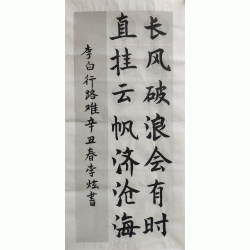 长风破浪会有时
直挂云帆济沧海
李白行路难辛丑春李炫书